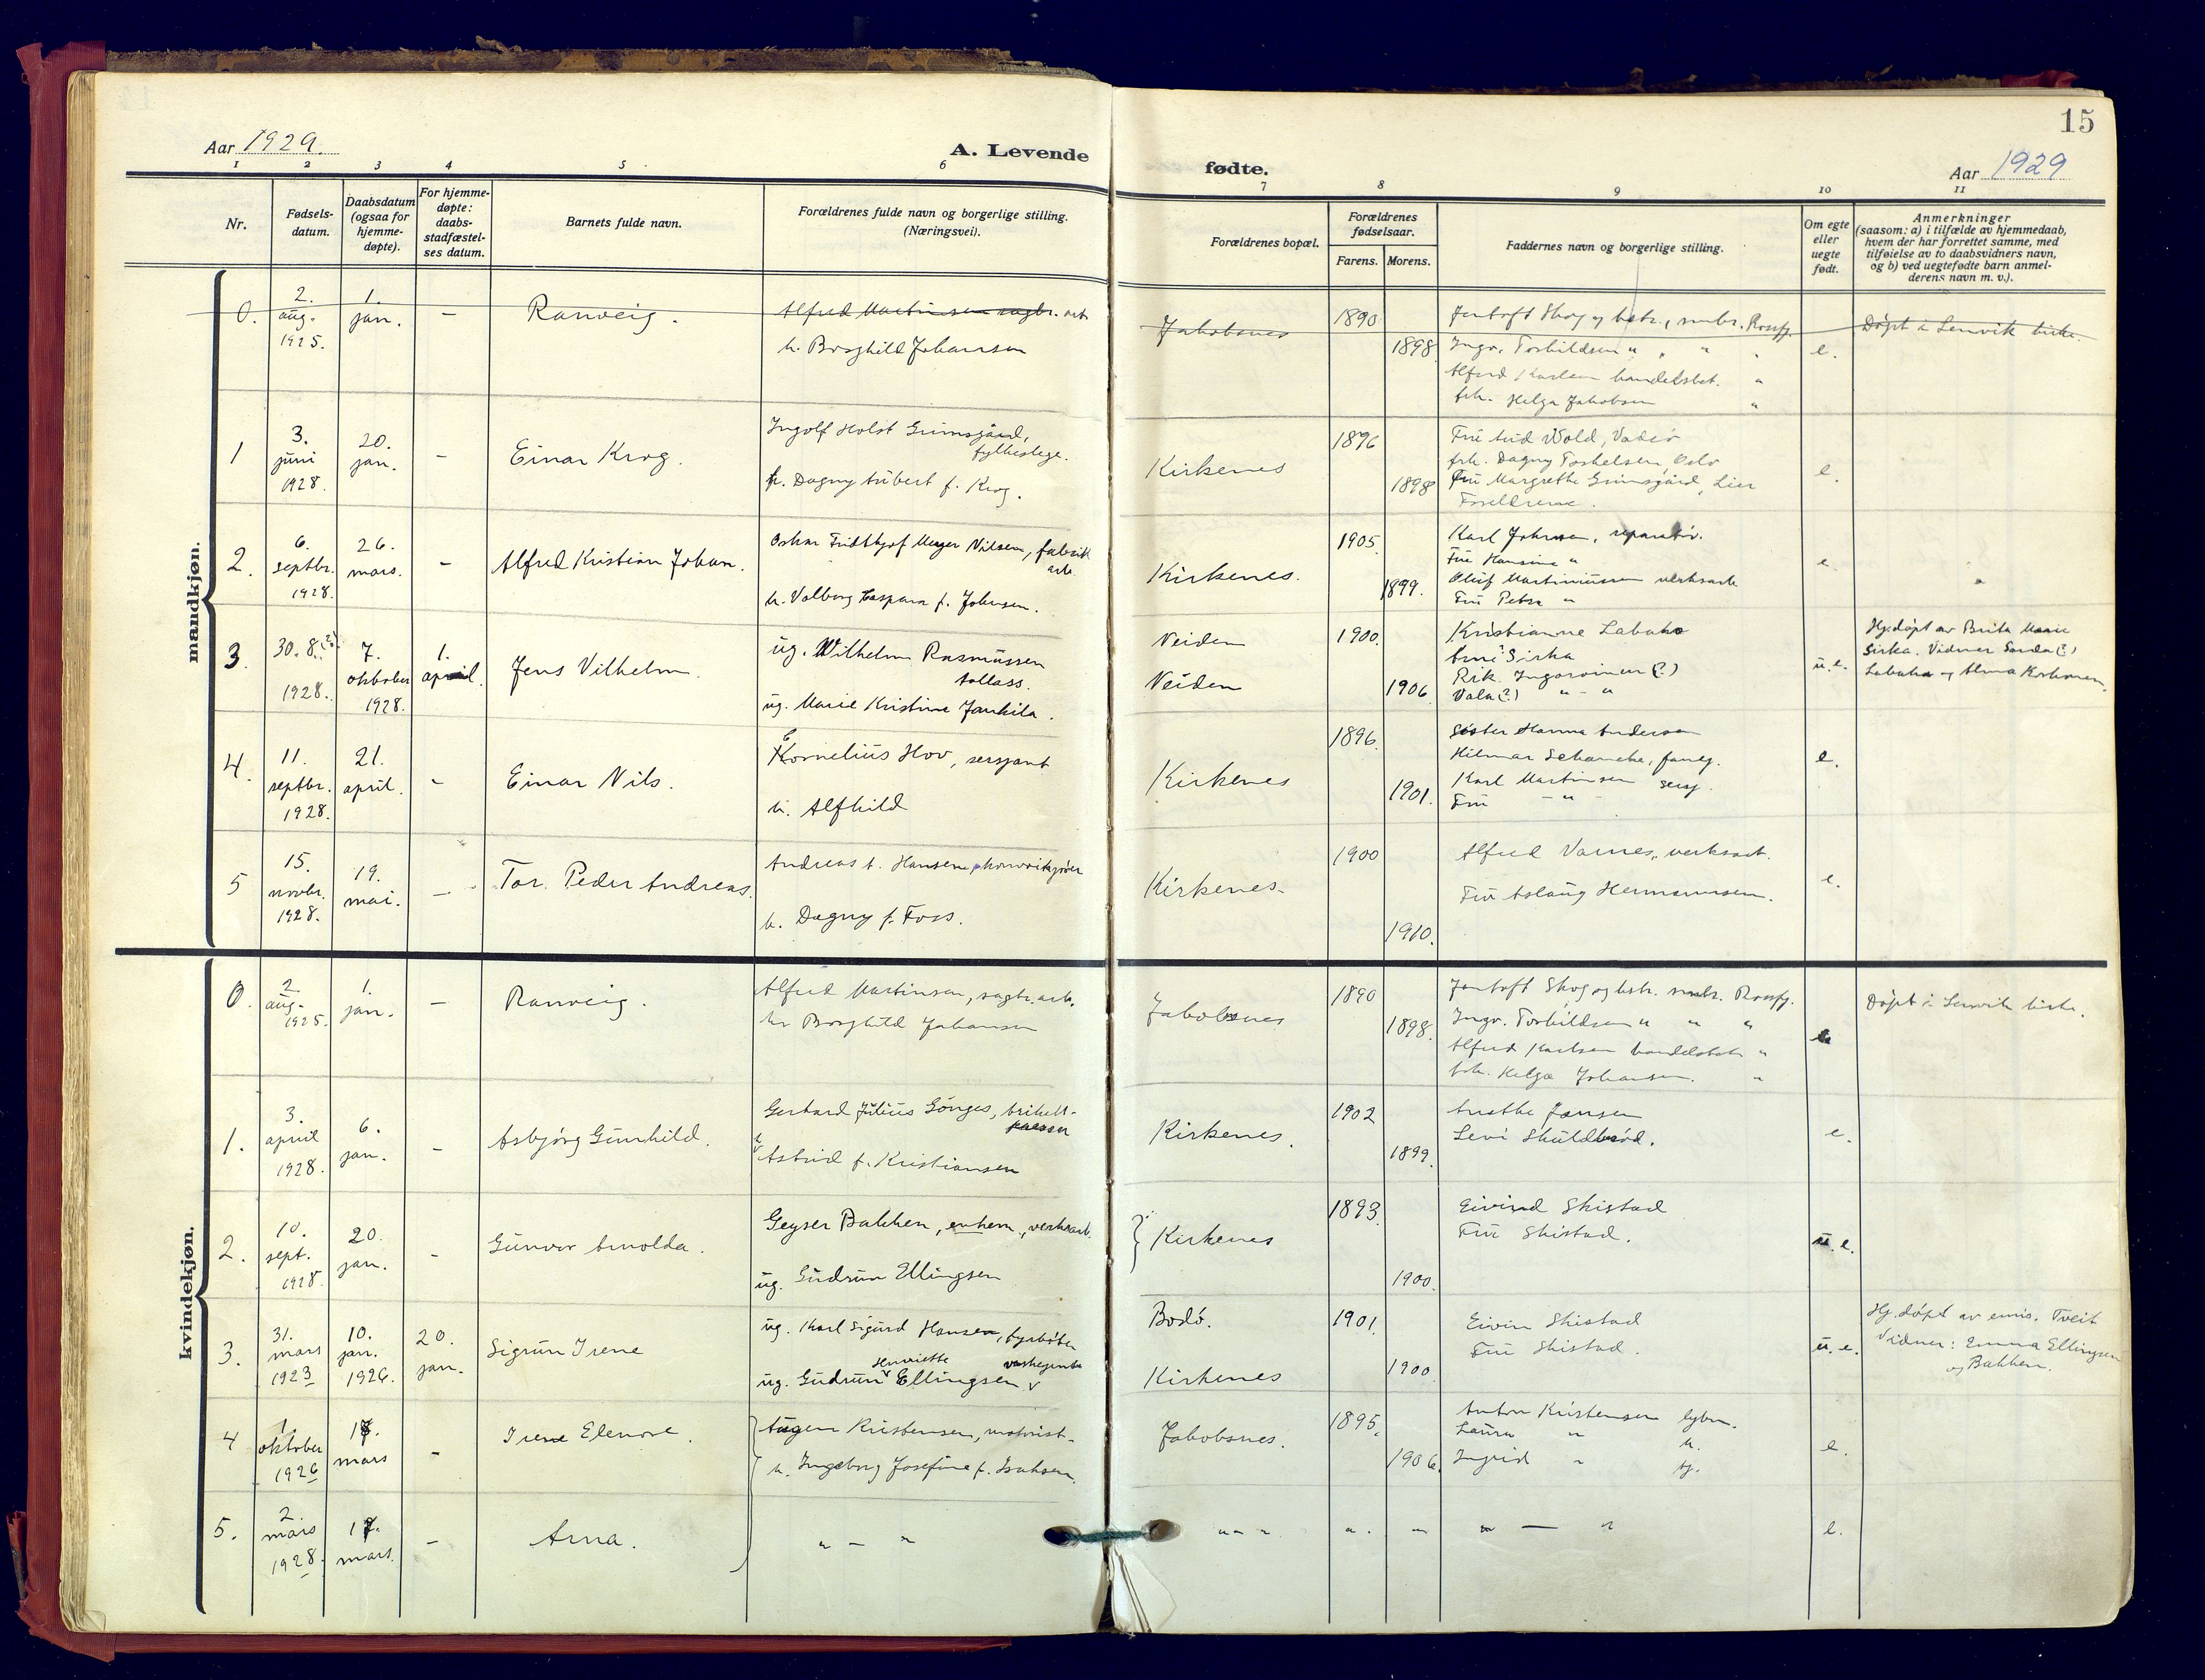 15
Aar 1929.
A. Levende fødte.
Aar 1929
1 2 3 4 5 6 7 8 9 10 11
Nr.
Fødsels-
datum.
Daabsdatum
(ogsaa for
hjemme-
døpte).
For hjemme-
døpte:
daabs-
stadfæstel-
ses datum.
Barnets fulde navn.
Forældrenes fulde navn og borgerlige stilling.
(Næringsvei).
Forældrenes bopæl.
Forældrenes
fødselsaar.
Farens. Morens.
Faddernes navn og borgerlige stilling.
Om egte
eller
uegte
født.
Anmerkninger
(saasom: a) i tilfælde av hjemmedaab,
hvem der har forrettet samme, med
tilføielse av to daabsvidners navn,
og b) ved uegtefødte barn anmel-
derens navn m. v.).
mandkjøn.
0.
2.
aug.
1925.
1.
jan.
-
Ranveig.
Alfred Martinsen sagbr. arb
h. Borghild Johansen
Jakobsnes
1890
1898
Jentoft Skog og hstr., smbr. Rossfj.
Ingv. Torkildsen " " " "
Alfred Karlsen handelsbet. "
frk. Helga Johansen "
e.
Døpt i Lenvik kirke.
1
3.
juni
1928.
20.
jan.
-
Einar Krog.
Ingolf Holst Grimsgård,
fylkeslege.
h. Dagny Aubert f. Krog.
Kirkenes
1896
1898
Fru Aud Wold, Vadsø
frk. Dagny Torkelsen, Oslo
Fru Margrethe Grimsgård, Lier
Foreldrene.
e.
2.
6.
septbr.
1928.
26.
mars.
-
Alfred Kristian Johan.
Oskar Fridthjof Meyer Nilsen, fabrik
arb.
h. Valborg Caspara f. Johnsen.
Kirkenes.
1905
1899.
Karl Johnsen, reparatør.
Fru Hansine "
Oluf Martinussen verksarb
Fru Petra "
e.
3.
30. 8. (?)
1928.
7.
oktober
1928.
1.
april.
Jens Vilhelm.
ug. Wilhelm Rasmussen
tollass.
ug. Marie Kristine Jankila.
Neiden
Neiden
1900.
1906
Kristianne Labaha
Arne Sirka
Rik. Ingaroinen (?)
Vala (?) " - "
u. e.
Hj. døpt av Brita Marie
Sirka. Vidner Sanda (?)
Labaha og Alma Korhonen.
4.
11.
septbr.
1928.
21.
april.
-
Einar Nils.
Kornelius Hov, sersjant
h. Alfhild
Kirkenes
1896.
1901.
Søster Hanna Andersen
Hilmar Schanche, fanej.
Karl Martinsen sersj.
Fru - " -
e.
5
15.
novbr.
1928.
19.
mai.
-
Tor. Peder Andreas.
Andreas A. Hansen
h. Dagny f. Foss.
Kirkenes.
1900
1910.
Alfred Varnes, verksarb.
Fru Aslaug Hermannsen.
e.
kvindekjøn.
0.
2
aug.
1925.
1.
jan.
-
Ranveig.
Alfred Martinsen, sagbr. arb.
h. Borghild Johansen
Jakobsnes
1890
1898.
Jentoft Skog og hstr. smbr. Rossfj.
Ingv. Torkildsen " " "
Alfred Karlsen handelsbet. "
frk. Helga Johansen. "
e
Døpt i Lenvik kirke.
1.
3.
april
1928.
6.
jan.
-
Asbjørg Gunhild.
Gerhard Julius Gønges, brikett-
h. Astrid f. Kristiansen
Kirkenes.
1902
1899.
Anethe Jansen
Levi Skuldbrød.
e.
2.
10.
sept.
1928.
20.
jan.
-
Gunvor Arnolda.
Geyser Bakken, enkem., verksarb.
ug. Gudrun Ellingsen
Kirkenes
1893.
1900
Eivind Skistad
Fru Skistad.
u. e.
3.
31.
mars
1923
10.
jan.
1926.
20.
jan.
Sigrun Irene
ug. Karl Sigurd Hansen, fyrbøter
Henriette
ug. Gudrun Ellingsen
Bodø.
Kirkenes
1901.
1900
Eivin Skistad
Fru Skistad.
u. e.
Hj. døpt av emis. Tveit
Vidner: Emma Ellingsen
og Bakken.
4
1.
oktober
1926
17.
mars
-
Irene Elenore.
Augen Kristensen, motorist.
h. Ingeborg Josefine f. Isaksen.
Jakobsnes.
1895.
1906.
Anton Kristensen
Laura " h.
Ingrid " tj.
e.
5.
2
mars
1928.
17.
mars.
-
Arna.
" - "
" - " " . " " — "
e.